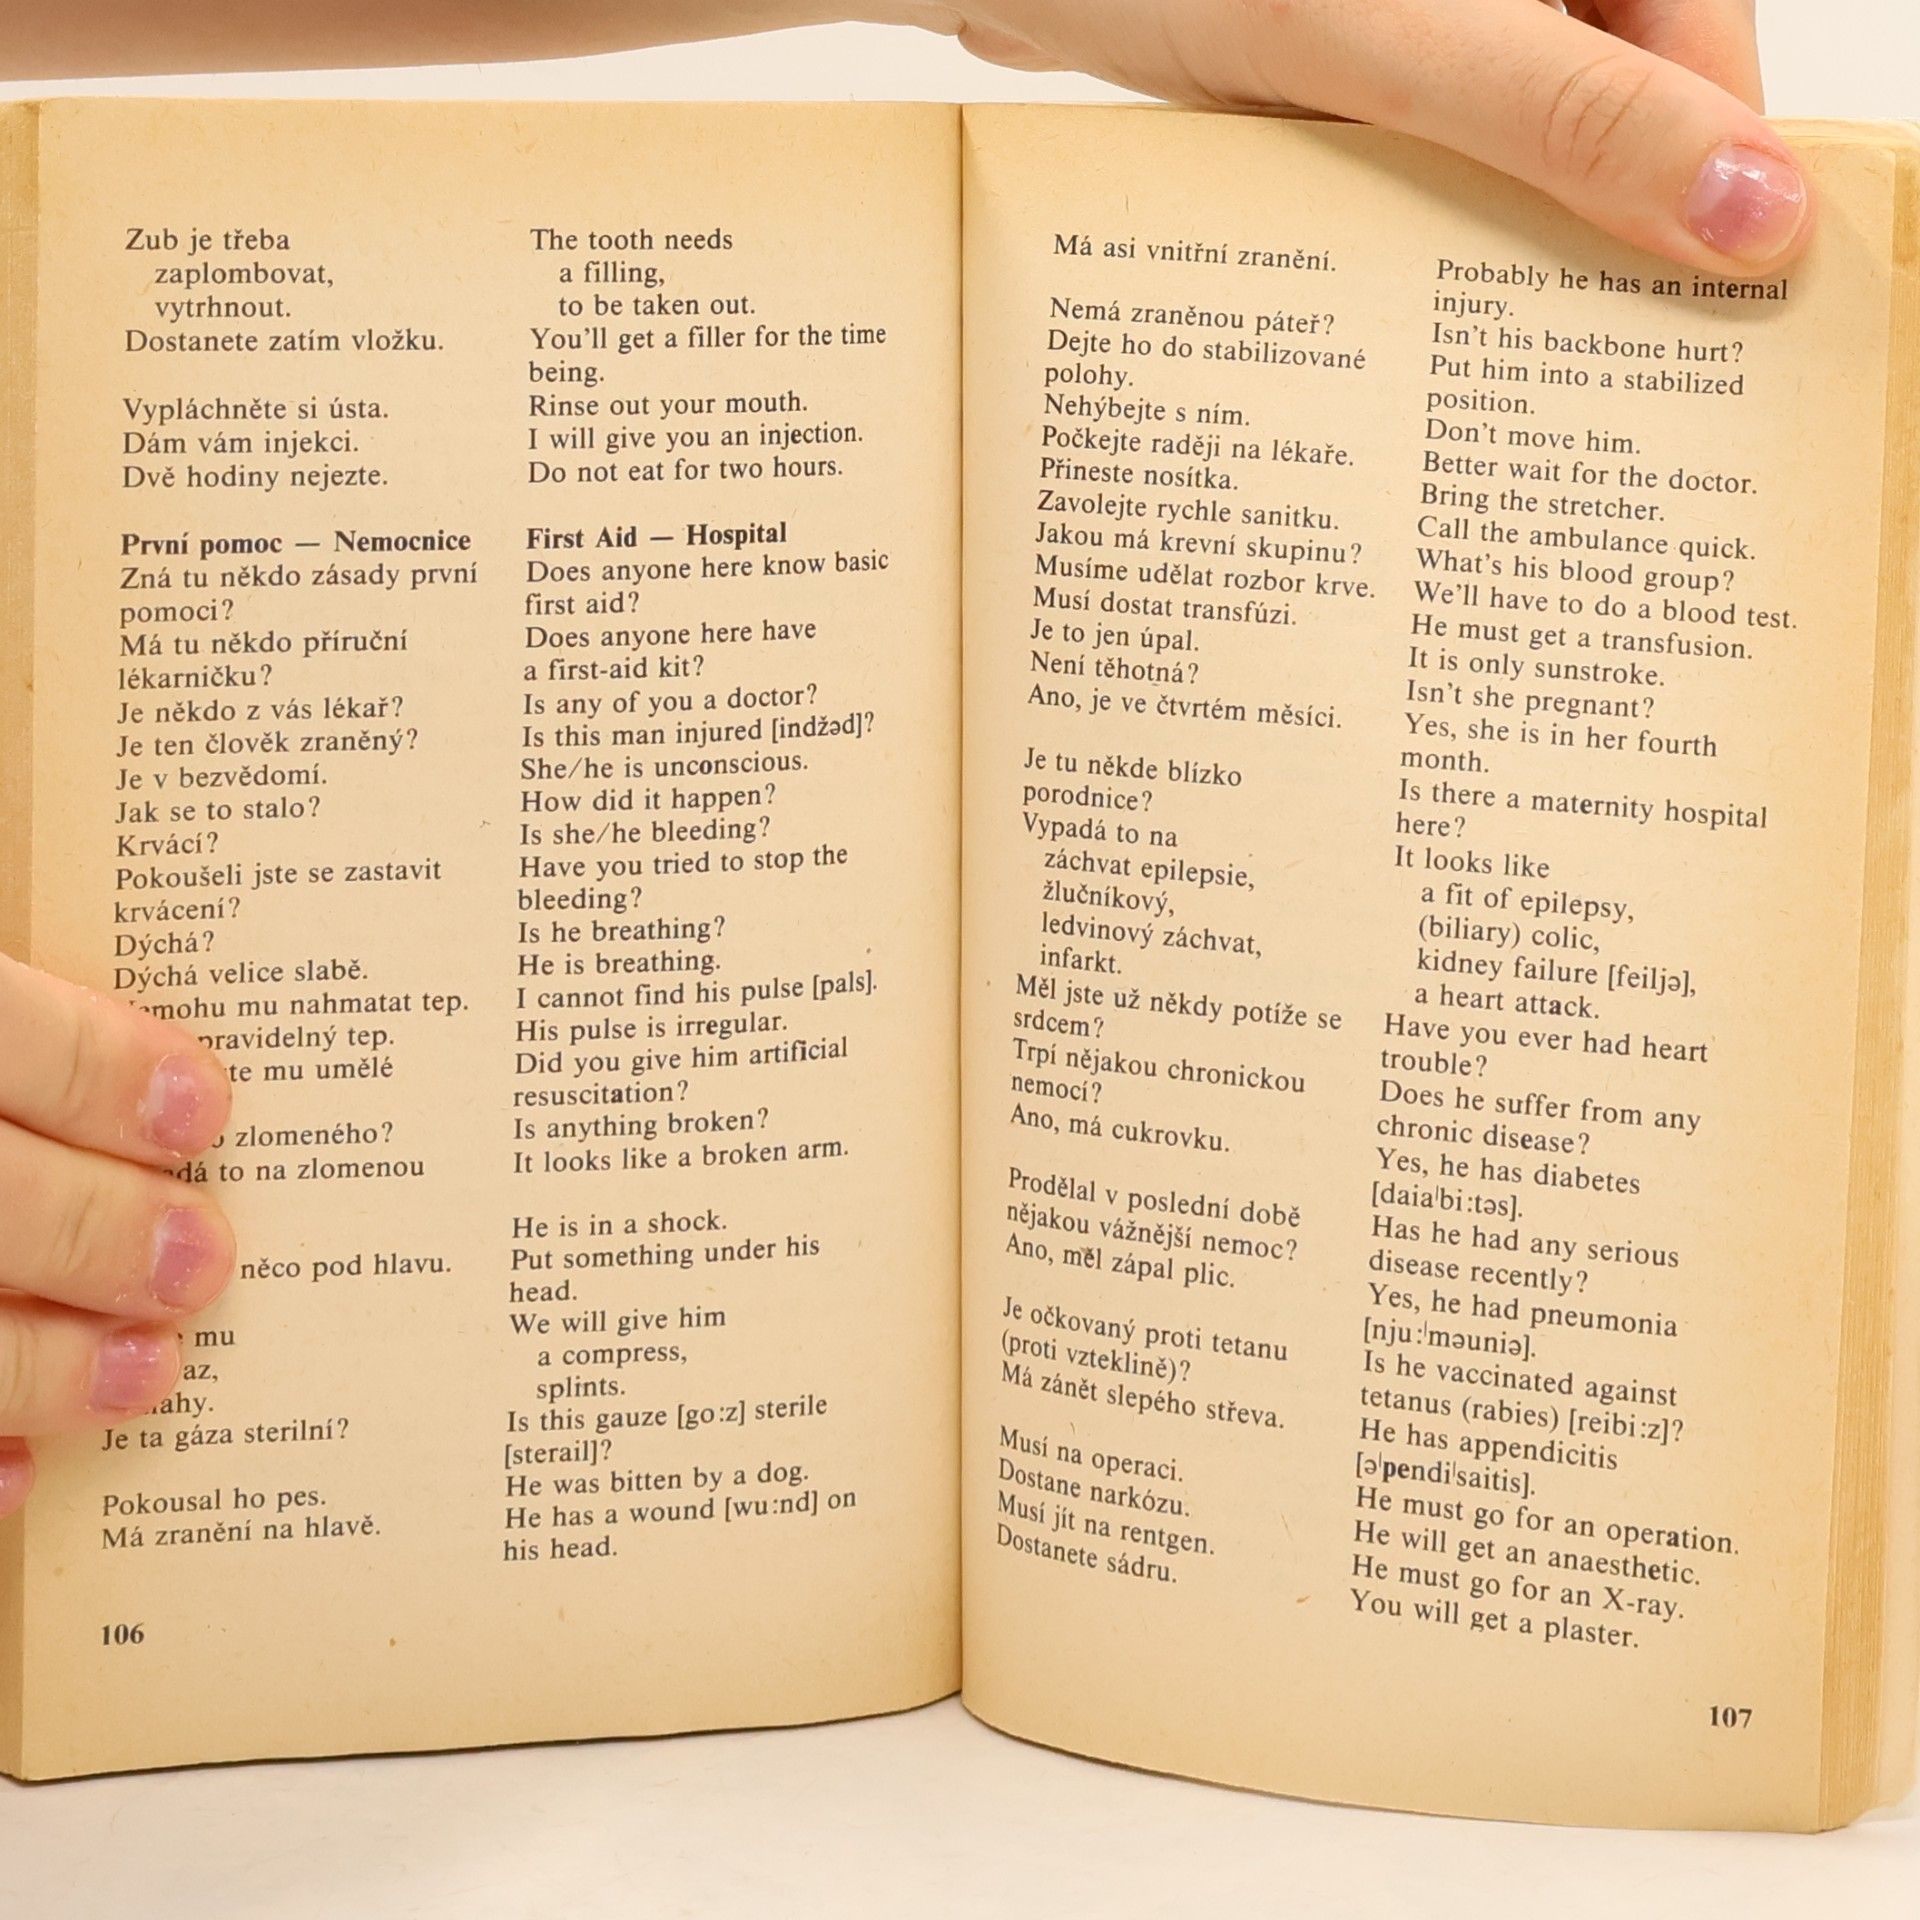 Zub je třeba
zaplombovat,
vytrhnout.
Dostanete zatím vložku.
Vypláchněte si ústa.
Dám vám injekci.
Dvě hodiny nejezte.
První pomoc — Nemocnice
Zná tu někdo zásady první
pomoci?
Má tu někdo příruční
lékarničku?
Je někdo z vás lékař?
Je ten člověk zraněný?
Je v bezvědomí.
Jak se to stalo?
Krvácí?
Pokoušeli jste se zastavit
krvácení?
Dýchá?
Dýchá velice slabě.
mu nahmatat tep.
tep.
mu umělé
zlomeného?
to na zlomenou
něco pod hlavu.
mu
Je ta gáza sterilní?
Pokousal ho pes.
Má zranění na hlavě.
106
The tooth needs
a filling,
to be taken out.
You'll get a filler for the time
being.
Rinse out your mouth.
I will give you an injection.
Do not eat for two hours.
First Aid — Hospital
Does anyone here know basic
first aid?
Does anyone here have
a first-aid kit?
Is any of you a doctor?
Is this man injured [indžəd]?
She/he is unconscious.
How did it happen?
Is she/he bleeding?
Have you tried to stop the
bleeding?
Is he breathing?
He is breathing.
I cannot find his pulse [pals].
His pulse is irregular.
Did you give him artificial
resuscitation?
Is anything broken?
It looks like a broken arm.
He is in a shock.
Put something under his
head.
We will give him
a compress,
splints.
Is this gauze [go:z] sterile
[sterail]?
He was bitten by a dog.
He has a wound [wu:nd] on
his head.
Má asi vnitřní zranění.
Nemá zraněnou páteř?
Dejte ho do stabilizované
polohy.
Nehýbejte s ním.
Počkejte raději na lékaře.
Přineste nosítka.
Zavolejte rychle sanitku.
Jakou má krevní skupinu?
Musíme udělat rozbor krve.
Musí dostat transfúzi.
Je to jen úpal.
Není těhotná?
Ano, je ve čtvrtém měsíci.
Je tu někde blízko
porodnice?
Vypadá to na
záchvat epilepsie,
žlučníkový,
ledvinový záchvat,
infarkt.
Měl jste už někdy potíže se
srdcem?
Trpí nějakou chronickou
nemocí?
Ano, má cukrovku.
Prodělal v poslední době
nějakou vážnější nemoc?
Ano, měl zápal plic.
Je očkovaný proti tetanu
(proti vzteklině)?
Má zánět slepého střeva.
Musí na operaci.
Dostane narkózu.
Musí jít na rentgen.
Dostanete sádru.
Probably he has an internal
injury.
Isn't his backbone hurt?
Put him into a stabilized
position.
Don't move him.
Better wait for the doctor.
Bring the stretcher.
Call the ambulance quick.
What's his blood group?
We'll have to do a blood test.
He must get a transfusion.
It is only sunstroke.
Isn't she pregnant?
Yes, she is in her fourth
month.
Is there a maternity hospital
here?
It looks like
a fit of epilepsy,
(biliary) colic,
kidney failure [feiljə],
a heart attack.
Have you ever had heart
trouble?
Does he suffer from any
chronic disease?
Yes, he has diabetes
[daiaˈbi:təs].
Has he had any serious
disease recently?
Yes, he had pneumonia
[nju:ˈməuniə].
Is he vaccinated against
tetanus (rabies) [reibi:z]?
He has appendicitis
[əˈpendiˈsaitis].
He must go for an operation.
He will get an anaesthetic.
He must go for an X-ray.
You will get a plaster.
107